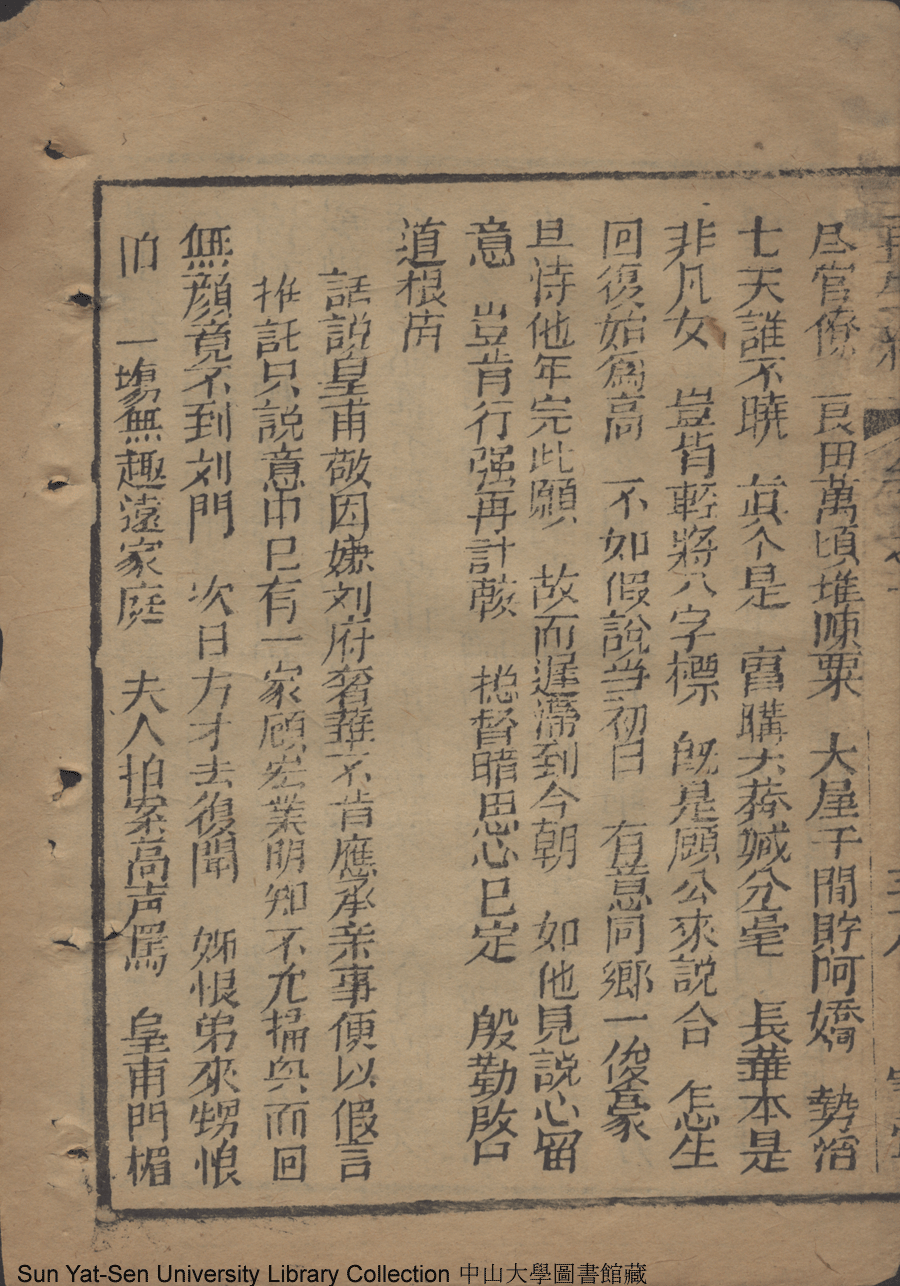 尽官僚　良田萬頃堆陳粟　大屋千間貯阿嬌　勢滔
七天誰不曉　真个是　富購大莽減分毫　長華本是
非凡女　豈肯輕將八字標　既是顧公來說合　怎生
回復始爲高　不如假說当初日　有意同鄉一俊豪
且待他年完此願　故而遲滯到今朝　如他見說心留
意　豈肯行强再計較　捴督暗思心已定　殷勤啓口
道根由
話說皇甫敬因嫌刘府奢華不肯應承亲事便以假言
推託只說意中已有一家顧宏業明知不允掃兴而回
無顏竟不到刘門　次日方才去復聞　姊恨弟來甥恨
伯　一塲無趣遶家庭　夫人拍案高声罵　皇甫門楣
Sun Yat-Sen University Library Collection 中山大學圖書館藏